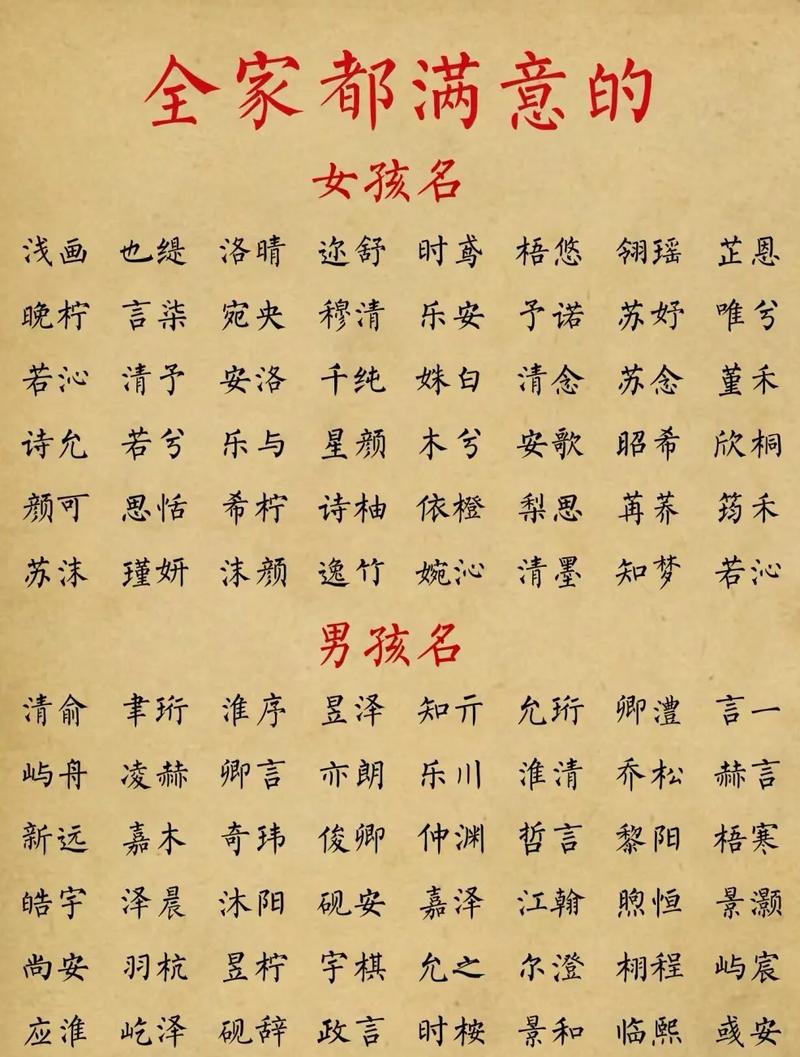 全家都满意的
女孩名
浅画 也缇 洛晴 迩舒 时鸢 梧悠 翎瑶 芷恩
晚柠 言柒 宛央 穆清 乐安 予诺 苏妤 唯兮
若沁 清予 安洛 千纯 姝白 清念 苏念 堇禾
诗允 若兮 乐与 星颜 木兮 安歌 昭希 欣桐
颜可 思恬 希柠 诗柚 依橙 梨思 苒荞 筠禾
苏沫 瑾妍 沫颜 逸竹 婉沁 清墨 知梦 若沁
男孩名
清俞 聿珩 淮序 昱泽 知亓 允珩 卿澧 言一
屿舟 凌赫 卿言 亦朗 乐川 淮清 乔松 赫言
新远 嘉木 奇玮 俊卿 仲渊 哲言 黎阳 梧寒
皓宇 泽晨 沐阳 砚安 嘉泽 江翰 煦恒 景灏
尚安 羽杭 昱柠 宇棋 允之 尔澄 栩程 屿宸
应淮 屹泽 砚辞 政言 时桉 景和 临熙 彧安